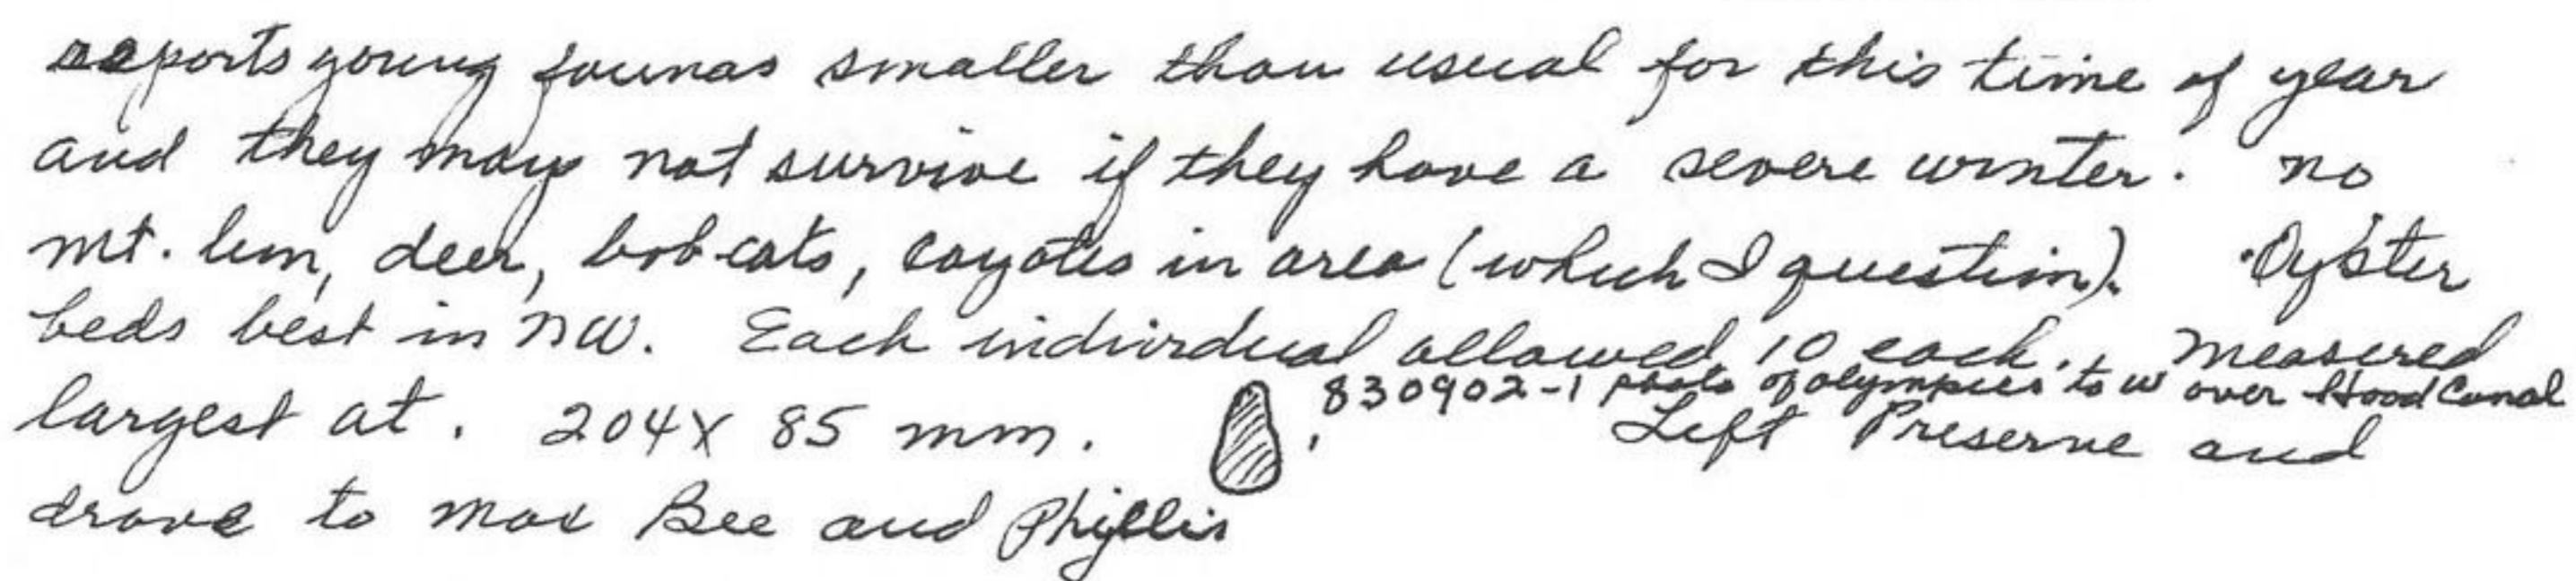 reports young faunas smaller than usual for this time of year
and they may not survive if they have a severe winter. no
mt. lion, deer, bobcats, coyotes in area (which I question). Oyster
beds best in NW. Each individual allowed 10 each. Measured
830902-1 photo of olympics to W over Hood Canal
largest at. 204 X 85 mm. Left Preserve and
drove to Max Bee and Phyllis